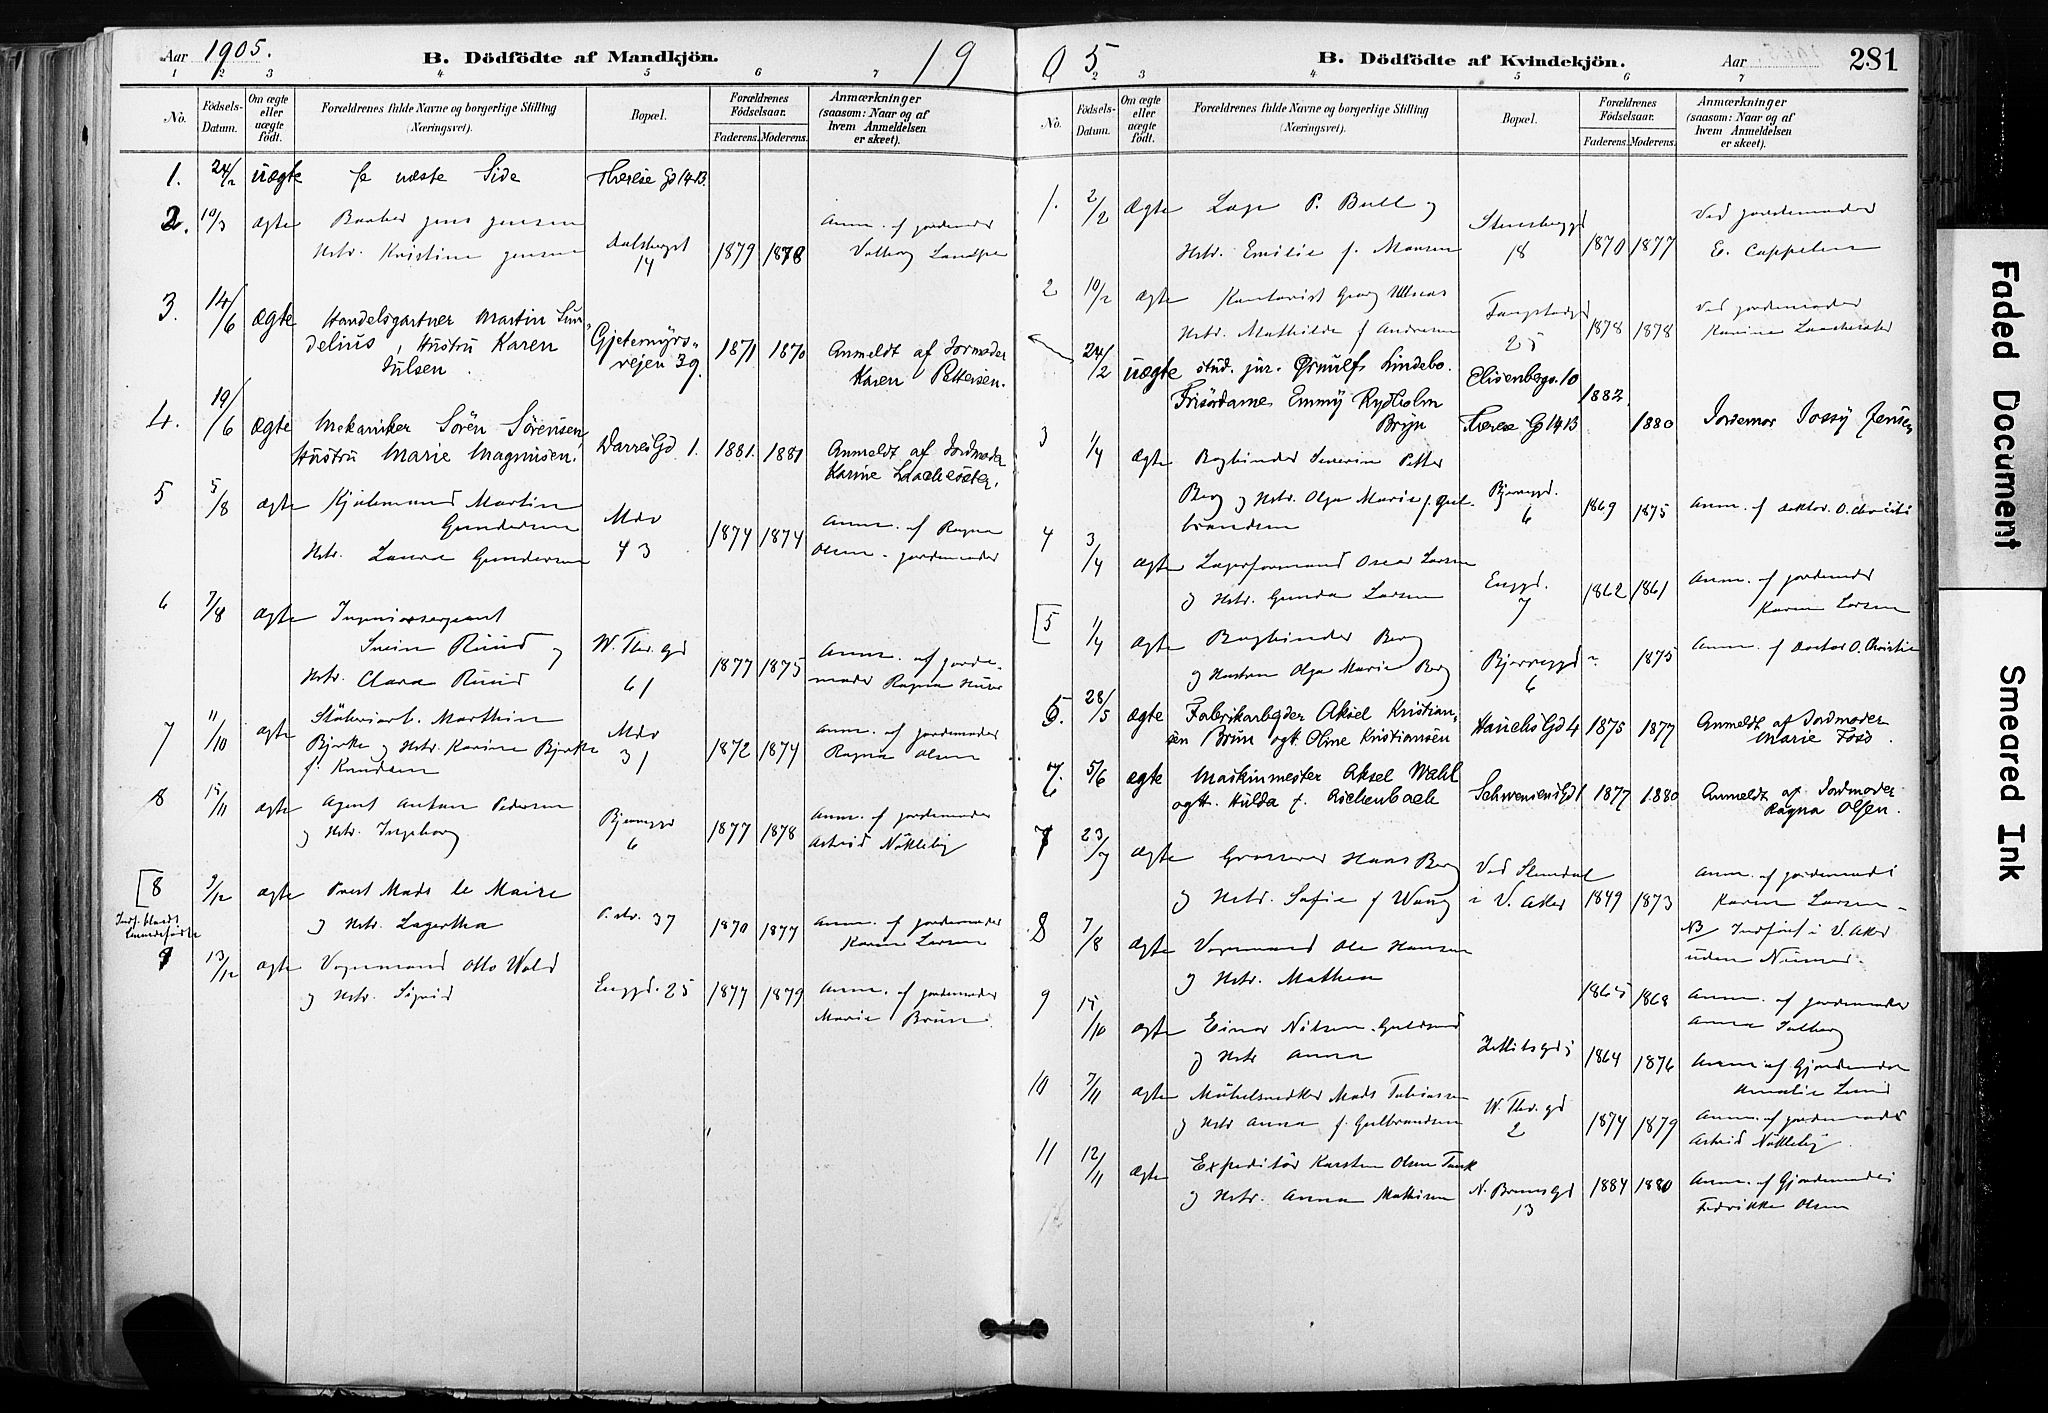 Aar 1905.
B. Dödfödte af Mandkjön.
19
1 2 3 4 5 6 7
No.
Födsels-Datum.
Om ægte eller uægte födt.
Forældrenes fulde Navne og borgerlige Stilling (Næringsvei).
Bopæl.
Forældrenes Födselsaar.
Faderens. Moderens.
Anmærkninger (saasom: Naar og af hvem Anmeldelsen er skeet).
1. 24/2 uægte se næste Side Therese Gd 14 B.
2. 10/3 ægte Jens Jensen
Hstr. Kristine Jensen Dalsbergst 14 1879 1878
Anm. af jordemoder
Valborg
3. 14/6 ægte Handelsgartner Martin Sun-
delius, Hustru Karen
Julsen. Gjetemyrs-
vejen 39. 1871 1870 Anmeldt af Jormoder
Karen Pettersen.
4. 19/6 ægte Mekaniker Sören Sörensen,
Hustru Marie Magnusen. Darres Gd 1. 1881. 1881 Anmeldt af Jordmoder
Karine
5 5/8 ægte Martin
Gundersen
Hstr. Laura Gundersen 43 1874 1874 Anm. af Ragna
Olsen - jordemoder
6 7/8 ægte Ingeniørsergeant
Svein Ruud og
Hstr. Clara Ruud W. Thr. gd
61 1877 1875 Anm. af jorde-
moder Ragna
7 11/10 ægte Marthin
Bjerke og Hstr. Karine Bjerke
f. Knudsen 31 1872 1874 Anm. af jordemoder
Ragna Olsen
8 15/11 ægte Agent Anton Pedersen
og Hstr. Ingeborg Bjerregd
6 1877 1878 Anm. af jordemoder
Astrid Nökleby
[8 9/12 ægte Prest Mads le Maire
og Hstr. Lagertha P. str. 37 1870 1877 Anm. af jordemoder
Karen Larsen
Indf. blandt
levendefödte
9 13/12 ægte Vognmand Otto Wold
og Hstr. Sigrid Enggd. 25 1877 1879 Anm. af jordemoder
Marie Bruun.
05
B. Dödfödte af Kvindekjön.
Aar
281
2 3 4 5 6 7
No.
Födsels-Datum.
Om ægte eller uægte födt.
Forældrenes fulde Navne og borgerlige Stilling (Næringsvei).
Bopæl.
Forældrenes Födselsaar.
Faderens. Moderens.
Anmærkninger (saasom: Naar og af hvem Anmeldelsen er skeet).
1. 2/2 ægte P. Bull og
Hstr. Emilie f. Stensberggd
18 1870 1877 Ved jordemoder
E. Cappelen
2 10/2 ægte Kontorist Georg
Hstr. Mathilde f Andresen
25 1878 1878 Ved jordemoder
Karine
24/2 uægte stud. jur. Ørnulf Lindebo. Elisenbergv. 10 1882.
Frisördame Emmy Rydholm
Bryn Therese Gd 14 B 1880 Jordemor Jossy Jensen
3 1/4 ægte Bogbinder Severin Petter
Berg og Hstr. Olga Marie f. Gul-
brandsen Bjerregd.
6 1869 1875 Anm. af doktor O. Christie
4 3/4 ægte Lagerformand Oscar Larsen
og Hstr. Gunda Larsen Enggd.
7 1862 1861 Anm. af jordemoder
Karen Larsen
[5 1/4 ægte Bogbinder Berg
og Hustru Olga Marie Berg Bjerregd
6 1875 Anm. af Doctor O. Christie
5. 28/5 ægte Fabrikarbejder Aksel Kristian-
sen Brun ogh. Oline Kristiansen Hauchs Gd 4 1875 1877 Anmeldt af Jordmoder
Marie Foss.
6 5/6 ægte Maskinmester Aksel Wahl
ogh. Hulda f. Aichenbach Schwensens Gd 1 1877 1880 Anmeldt af Jordmoder
Ragna Olsen.
7 23/7 ægte Grosserer Hans Berg
og Hstr. Sofie f Wang Ved
i V. Aker 1849 1873 Anm. af jordemoder
Karen Larsen -
NB Indført i V. Aker
uden Numer.
8 7/8 ægte Vognmand Ole Hansen
og Hstr. Mathea
1865 1868 Anm. af jordemoder
Anna Solberg
9 15/10 ægte Einar Nilsen
og Hstr Anna Zetlitzgd 1864 1876 Anm af Gjordemoder
Amalie Lund
10 7/11 ægte Möbelsnedker Mads Tobiassen
og Hstr Anna f. Gulbrandsen W. Thr. gd
2 1874 1879 Anm. af jordemoder
Astrid Nökleby
11 12/11 ægte Expeditör Karsten Olsen
og Hstr. Anna Mathisen N. Bruns Gd
13 1884 1880 Anm. af Gjordemoder
Fredrikke Olsen
Faded Document
Smeared Ink